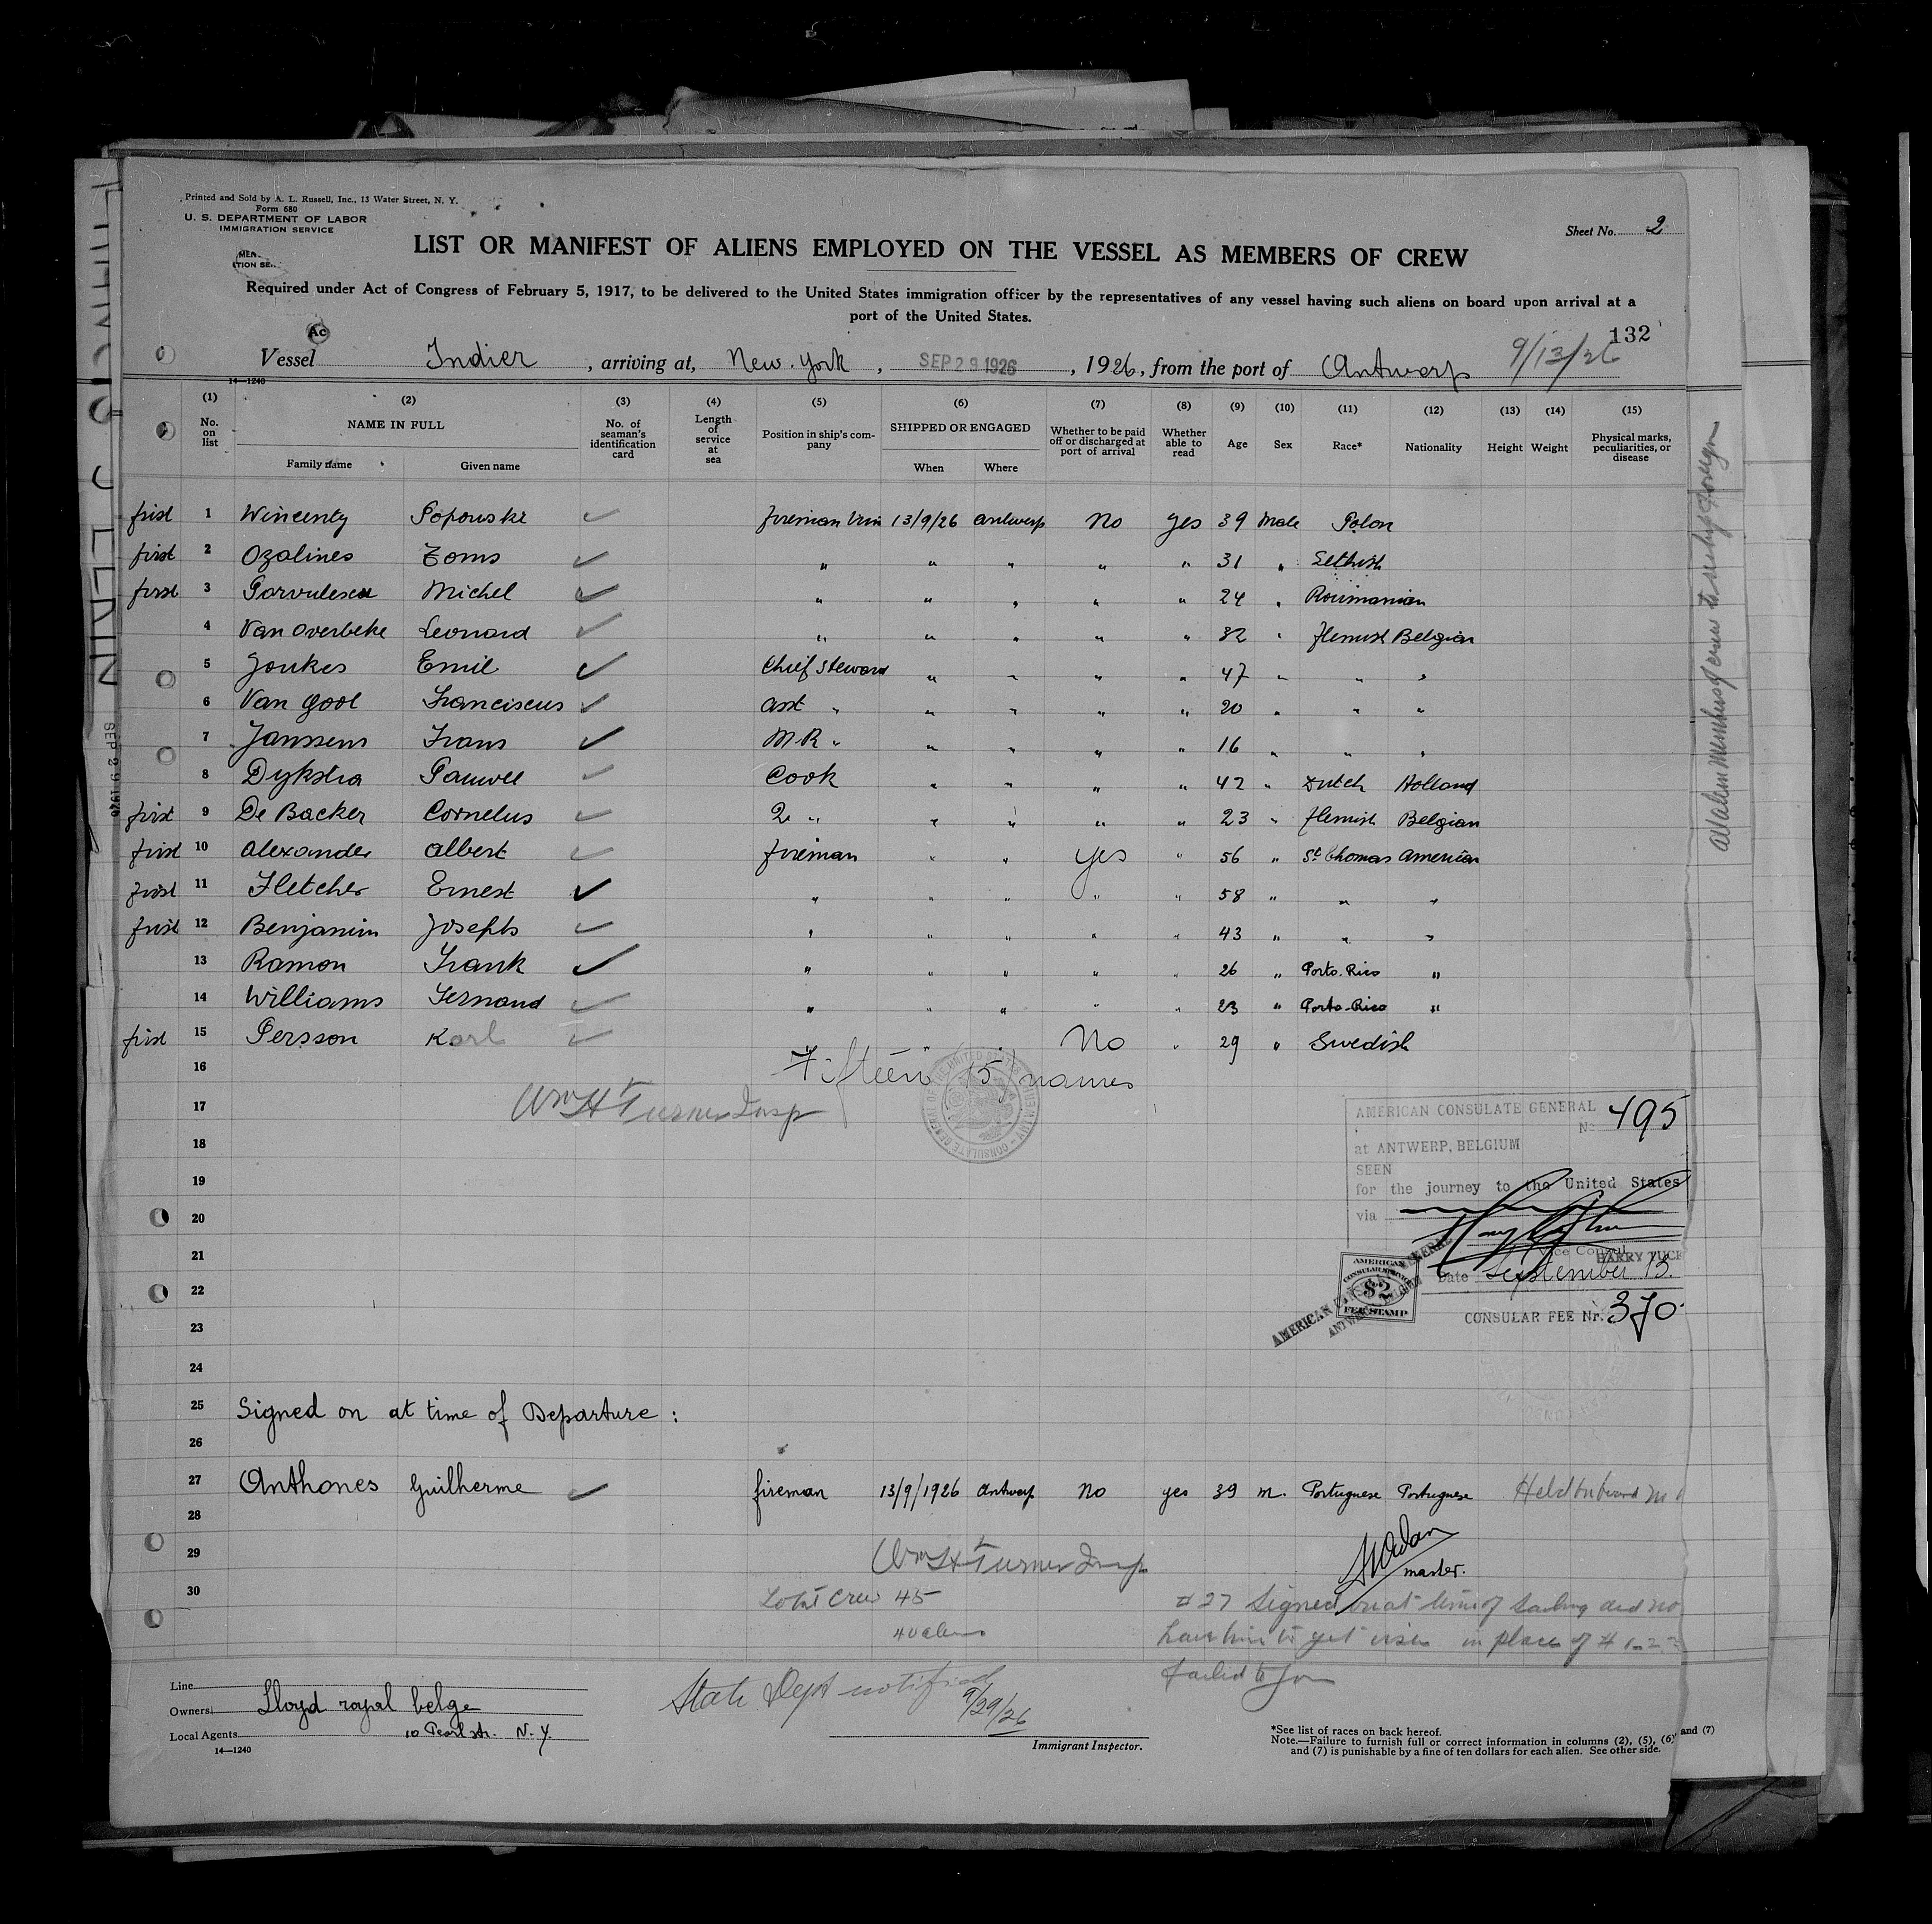 Printed and Sold by A. L. Russell, Inc., 13 Water Street, N. Y.
Form 680
U. S. DEPARTMENT OF LABOR
IMMIGRATION SERVICE
Sheet No. 2
LIST OR MANIFEST OF ALIENS EMPLOYED ON THE VESSEL AS MEMBERS OF CREW
Required under Act of Congress of February 5, 1917, to be delivered to the United States immigration officer by the representatives of any vessel having such aliens on board upon arrival at a
port of the United States.
132
Vessel Indier, arriving at, New York, SEP 29 1926, 1926, from the port of Antwerp 9/13/26
14—1240
(1) No. on list (2) NAME IN FULL Family name Given name (3) No. of seaman's identification card (4) Length of service at sea (5) Position in ship's company (6) SHIPPED OR ENGAGED When Where (7) Whether to be paid off or discharged at port of arrival (8) Whether able to read (9) Age (10) Sex (11) Race* (12) Nationality (13) Height (14) Weight (15) Physical marks, peculiarities, or disease
first 1 Wincenty Popouski fireman 13/9/26 Antwerp No yes 39 Male Polon
first 2 Ozolines Toms " " " " " 31 " Lethish
first 3 Parvulescu Michel " " " " " 24 " Roumanian
4 Van Overbeke Leonard " " " " " 32 " flemish Belgian
5 Jonkes Emil Chief Steward " " " " 47 " " "
6 Van Gool Franciscus asst " " " " " 20 " " "
7 Janssens Frans M.R. " " " " " 16 " " "
8 Dykstra Pauwel Cook " " " " 42 " Dutch Holland
first 9 De Backer Cornelus 2e " " " " " 23 " flemish Belgian
first 10 Alexander Albert fireman " " yes " 56 " St Thomas American
first 11 Fletcher Ernest " " " " " 58 " " "
first 12 Benjamin Josephs " " " " " 43 " " "
13 Ramon Frank " " " " " 26 " Porto-Rico "
14 Williams Fernand " " " " " 23 " Porto-Rico "
first 15 Persson Karl " " No " 29 " Swedish
16 Fifteen (15) names
17 Wm H Turner Insp
AMERICAN CONSULATE GENERAL
No 495
at ANTWERP, BELGIUM
18
SEEN
19
for the journey to the United States
20
via
21
Vice Consul
HARRY TUCK
Date September 13.
22
AMERICAN CONSULAR SERVICE $2 FEE STAMP
CONSULAR FEE Nr. 370
23
24
25 Signed on at time of Departure :
26
27 Anthones Guilherme fireman 13/9/1926 Antwerp No yes 39 m. Portuguese Portuguese Held on board
28
29 Wm H Turner Insp
master.
30 Total Crew 45
40 aliens
#27 Signed on at time of sailing did no
have time to get visa in place of #
failed to join
State Dept notified
9/29/26
Line
Owners Lloyd royal belge
Local Agents 10 Pearl str. N. Y.
14—1240
Immigrant Inspector.
*See list of races on back hereof.
Note.—Failure to furnish full or correct information in columns (2), (5), (6) and (7)
and (7) is punishable by a fine of ten dollars for each alien. See other side.